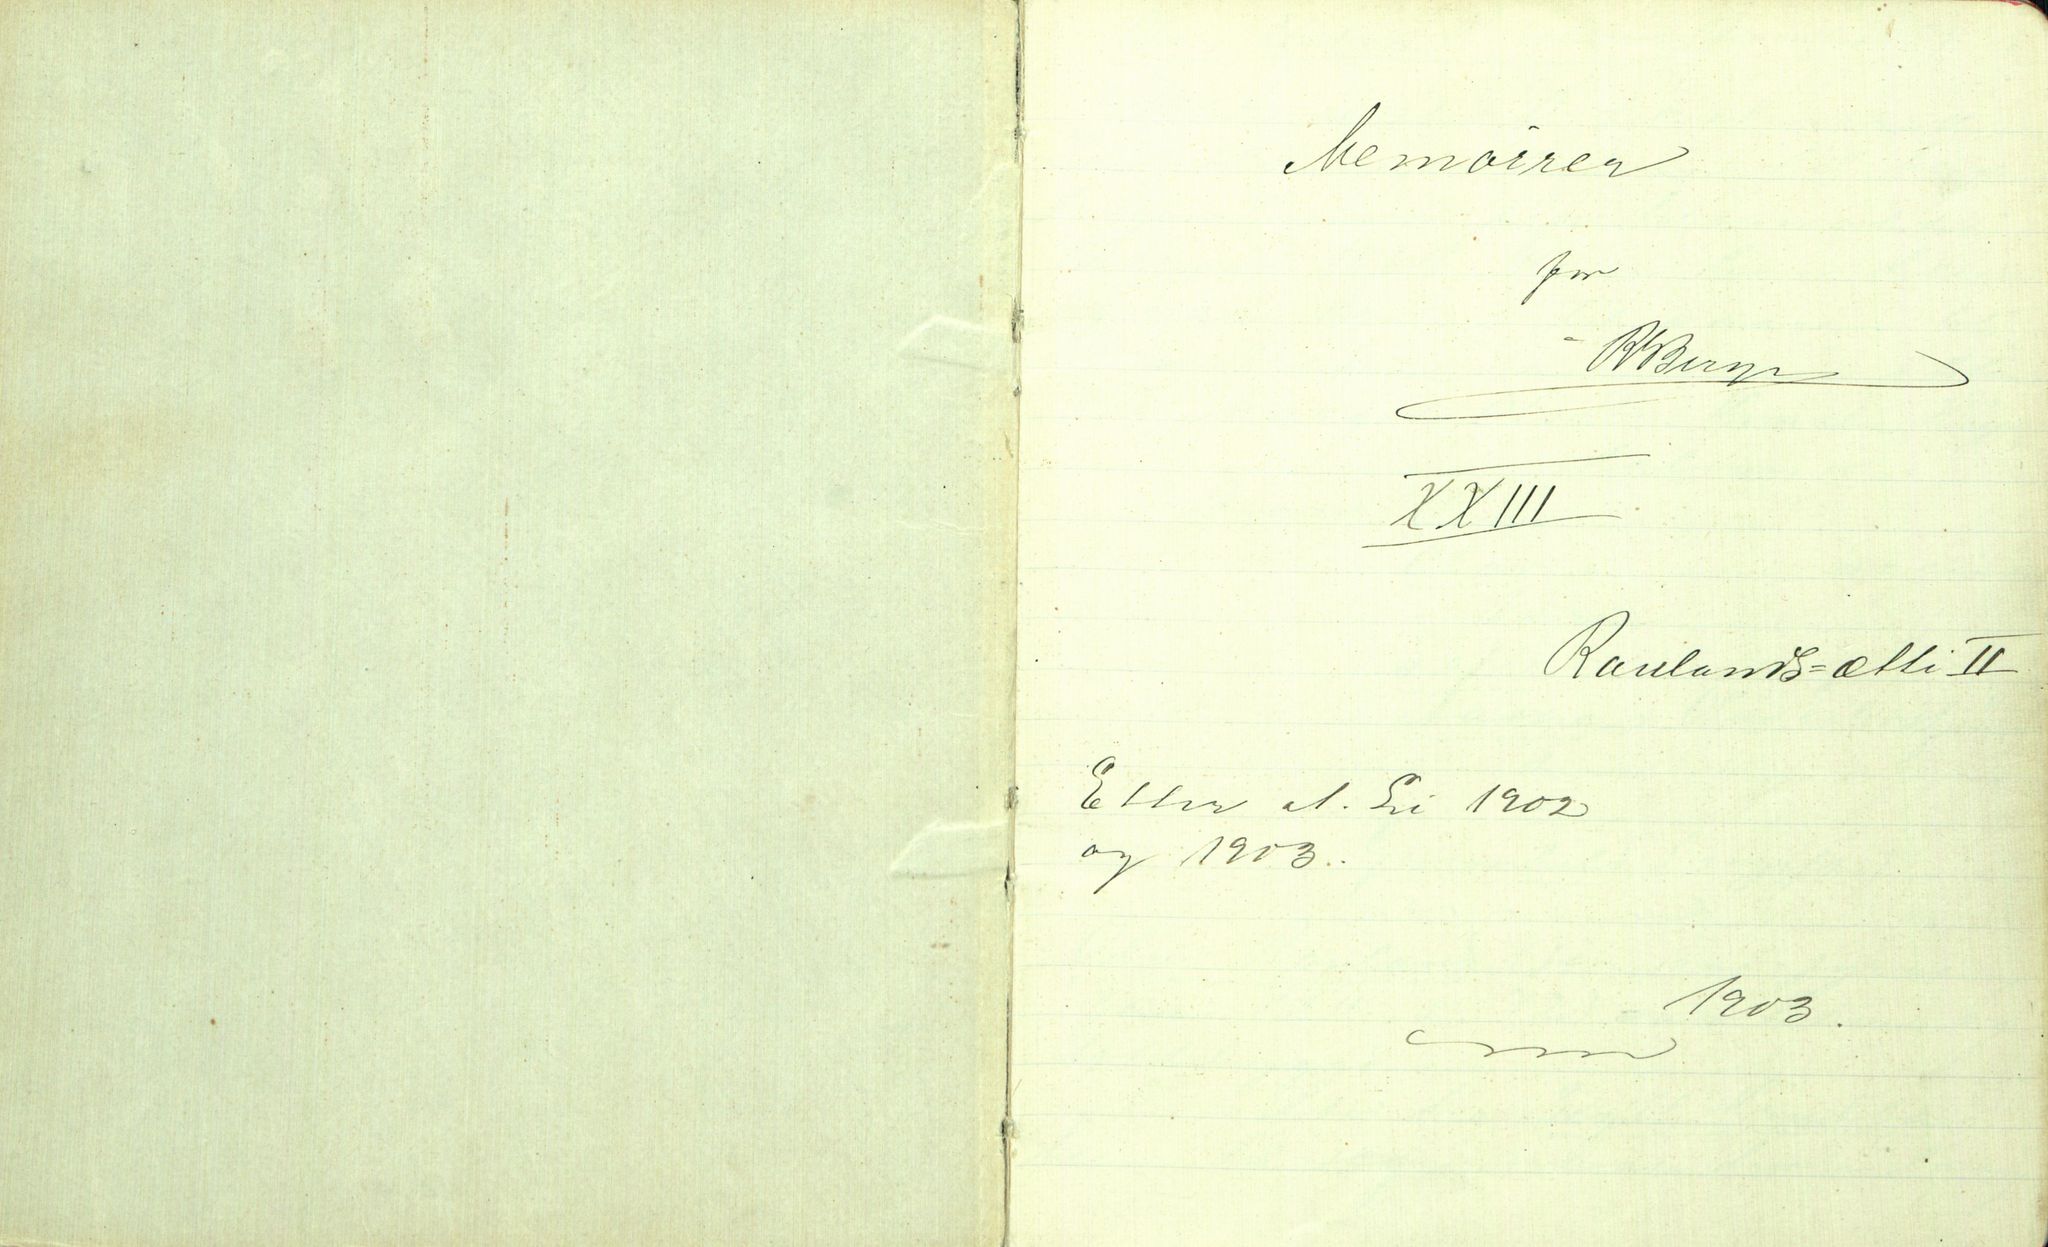 Memoirer
for
RBerge
XXIII
Raulands=ætti II
Etter
1902
og 1903.
1903.